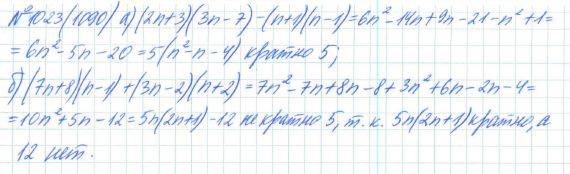 №1023(1090) а) (2n+3)(3n-7)-(n+1)(n-1)=6n²-14n+9n-21-n²+1=
=6n²-5n-20=5(n²-n-4) кратно 5;
б) (7n+8)(n-1)+(3n-2)(n+2)=7n²-7n+8n-8+3n²+6n-2n-4=
=10n²+5n-12=5n(2n+1)-12 не кратно 5, т. к. 5n(2n+1) кратно, а
12 нет.